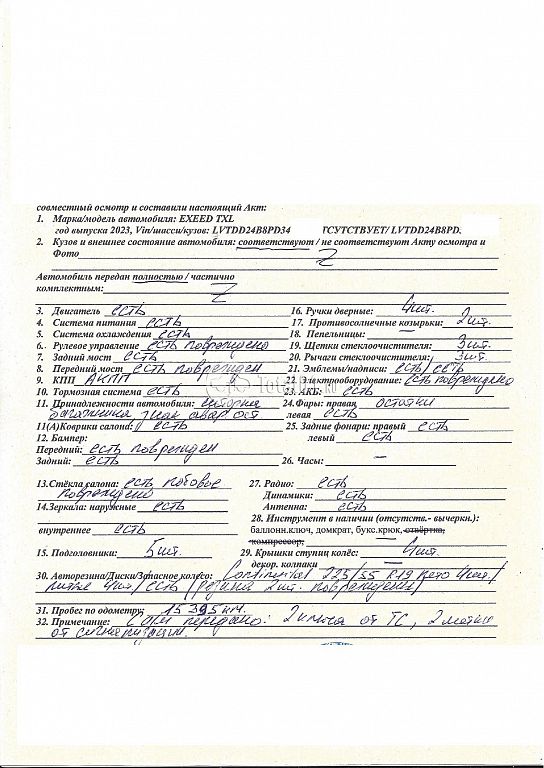 совместный осмотр и составили настоящий Акт:
1. Марка/модель автомобиля: EXEED TXL
год выпуска 2023, Vin/шасси/кузов: LVTDD24B8PD34 ТСУТСТВУЕТ/ LVTDD24B8PD.
2. Кузов и внешнее состояние автомобиля: соответствуют / не соответствуют Акту осмотра и
Фото
Автомобиль передан полностью / частично
комплектным:
3. Двигатель есть 16. Ручки дверные: 4 шт.
4. Система питания есть 17. Противосолнечные козырьки: 2 шт.
5. Система охлаждения есть 18. Пепельницы: —
6. Рулевое управление есть повреждено 19. Щетки стеклоочистителя: 3 шт.
7. Задний мост есть 20. Рычаги стеклоочистителя: 3 шт.
8. Передний мост есть поврежден 21. Эмблемы/надписи: есть/есть
9. КПП АКПП 22. Электрооборудование: есть повреждено
10. Тормозная система есть 23. АКБ: есть
11. Принадлежности автомобиля: шторка 24. Фары: правая остатки
багажника знак авар ост левая есть
11(А)Коврики салона: есть 25. Задние фонари: правый есть
12. Бампер: левый есть
Передний: есть поврежден
Задний: есть 26. Часы: —
13. Стёкла салона: есть лобовое 27. Радио: есть
повреждено Динамики: есть
14. Зеркала: наружные есть Антенна: есть
28. Инструмент в наличии (отсутств.- вычеркн.):
внутреннее есть баллонн.ключ, домкрат, букс.крюк, отвёртка,
компрессор;
15. Подголовники: 5 шт. 29. Крышки ступиц колёс: 4 шт.
декор. колпаки —
30. Авторезина/Диски/Запасное колесо: Continental 225/55 R19 лето 4 шт/
литые 4 шт/ есть (резина 2 шт. повреждены)
31. Пробег по одометру: 15 395 км.
32. Примечание: передано: 2 ключа от ТС, 2 метки
от сигнализации.